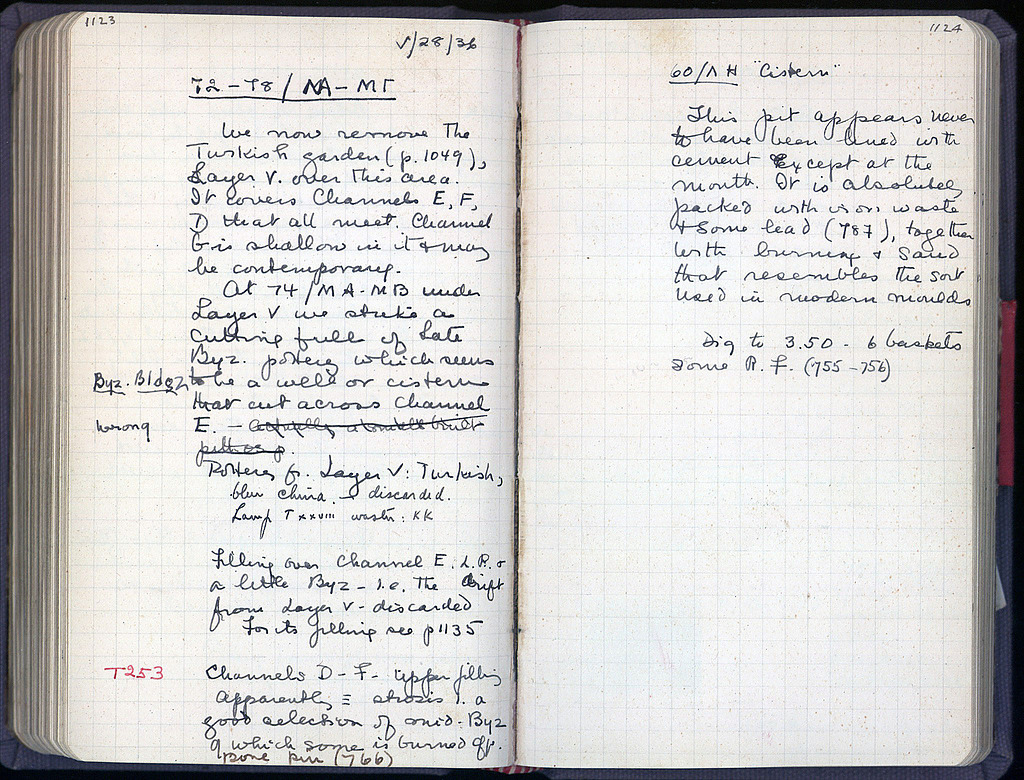 1123
V/28/36
72-78/MA-MT
We now remove The
Turkish garden (p. 1049),
Layer V. over this area.
It covers Channels E, F,
D that all meet. Channel
G is shallow in it & may
be contemporary.
At 74/MA-MB under
Layer V we strike a
cutting full of Late
Byz. pottery which seems
Byz. Bldg to be a well or cistern
that cut across Channel
wrong E. -
Pottery fr. Layer V: Turkish,
blue china. discarded.
Lamp T XXVIII waster: KK
Filling over Channel E. L.R. &
a little Byz - i.e. The drift
from Layer V - discarded
For its filling see p 1135
T253 Channels D-F- upper filling
apparently ≡ strosis 1. a
good selection of mid-Byz
of which some is burned off.
bone pin (766)
1124
60/ΛH "Cistern"
This pit appears never
to have been lined with
cement Except at the
mouth. It is absolutely
packed with iron waste
& some lead (787), together
with burning & sand
that resembles the sort
used in modern moulds
Dig to 3.50 - 6 baskets
some R. F. (755-756)